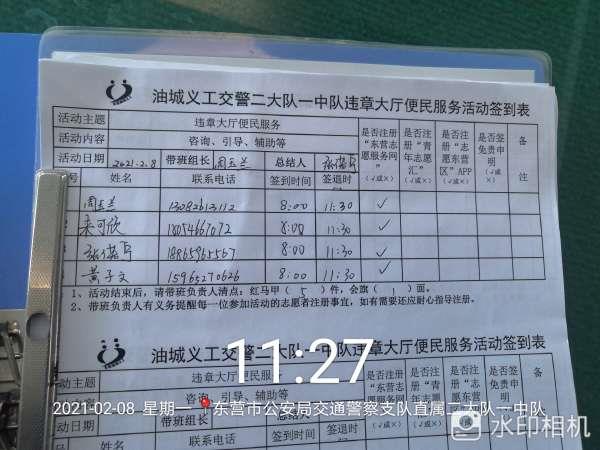 油城义工交警二大队一中队违章大厅便民服务活动签到表
活动主题 违章大厅便民服务 是否注册“东营志愿服务网”(√或×) 是否注册“青年志愿汇”(√或×) 是否注册“志愿东营区”APP(√或×) 是否签免责申明(√或×) 备注
活动内容 咨询、引导、辅助等
活动日期 2021.2.8 带班组长 周玉兰 总结人
号 姓名 联系电话 签到时间 签退时间
周玉兰 13282613112 8:00 11:30 ✓
来可欣 18054667072 8:00 11:30 ✓
18865965567 8:00 11:30 ✓
黄子文 15965270626 8:00 11:30 ✓
1、活动结束后,请带班负责人清点:红马甲(5)件,会旗(1)面。
2、带班负责人有义务提醒每一位参加活动的志愿者注册事宜,如有需要还应耐心指导注册。
油城义工交警二大队一中队违章大厅便民服务活动签到表
活动主题 违章大厅便民服务
活动内容 咨询、引导、辅助等
活动日期 带班组长
11:27
2021-02-08 星期一 东营市公安局交通警察支队直属二大队一中队
水印相机